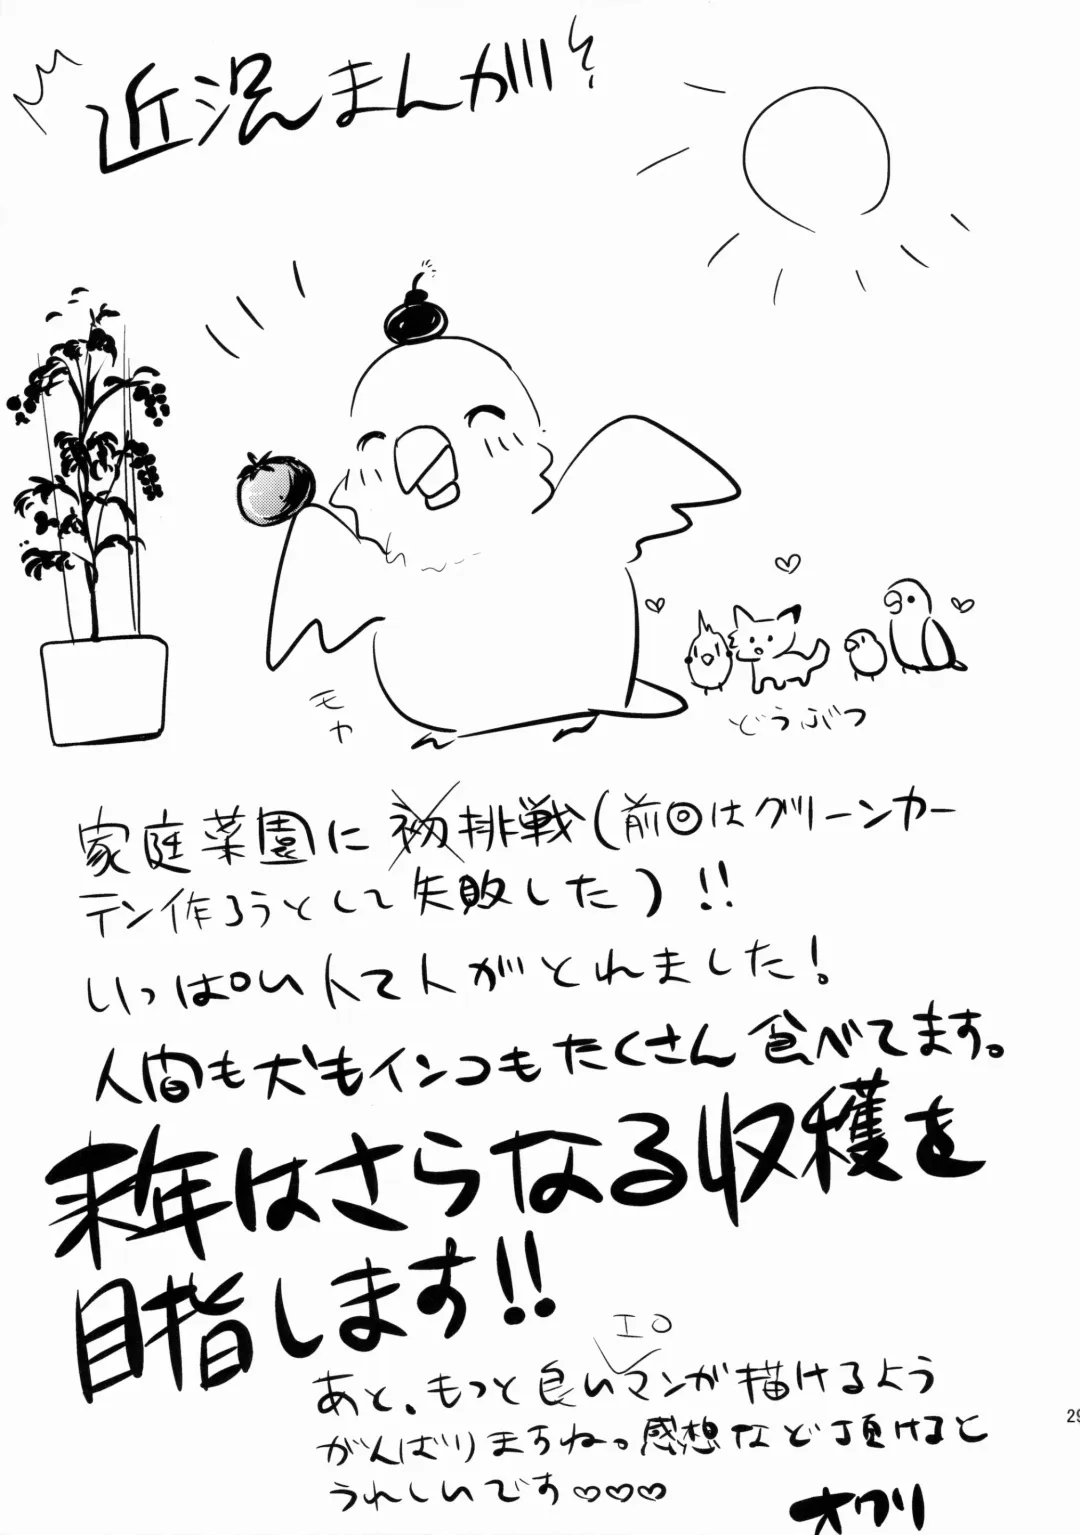 近況まんが
モカ
どうぶつ
家庭菜園に初挑戦(前回はグリーンカー
テン作ろうとして失敗した)!!
いっぱいトマトがとれました!
人間も犬もインコもたくさん食べてます。
来年はさらなる収穫を
目指します!!
エロ
あと、もっと良いマンガ描けるよう
がんばりますね。感想など頂けると
うれしいです♡♡♡
オワリ
29